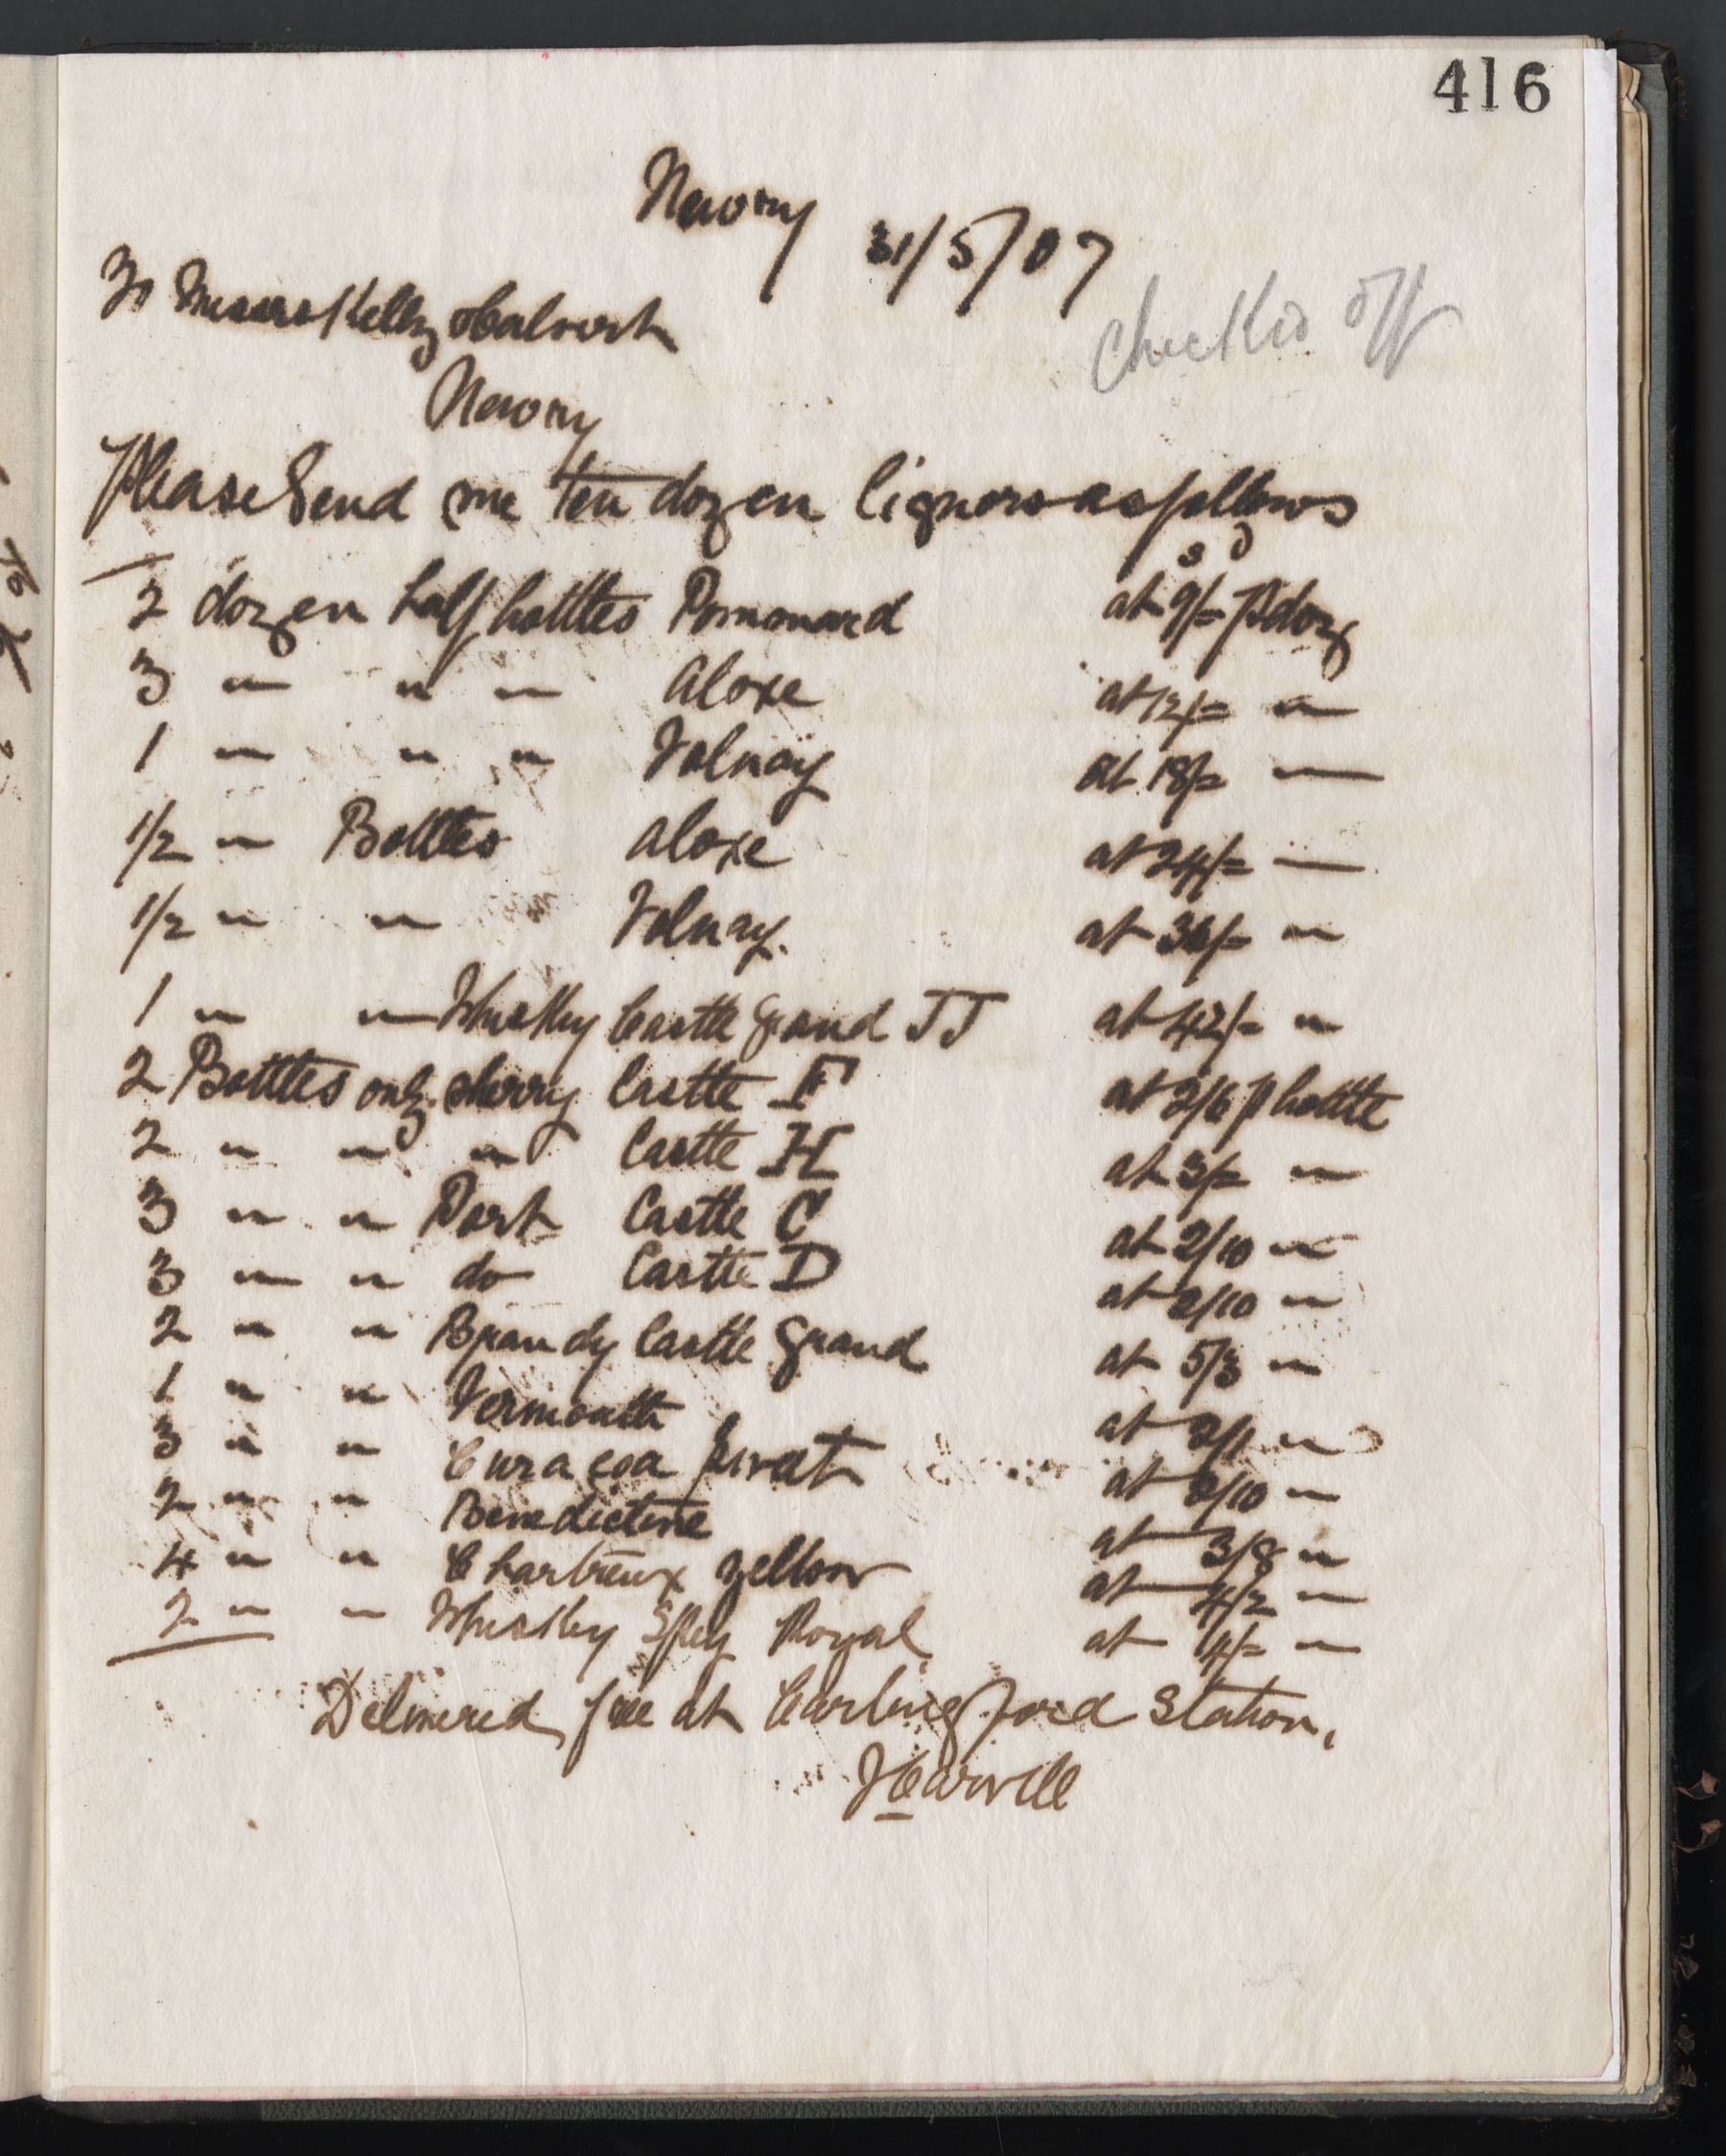 416
Newry 31/5/07
checked off
To Messrs Kelly & Calvert
Newry
Please Send me ten dozen liquors as follows
s d
2 dozen half bottles Pommard at 9/= p doz
3 " " " Aloxe at 12/= "
1 " " " Volnay at 18/= "
1/2 " Bottles Aloxe at 24/= "
1/2 " " Volnay. at 36/= "
1 " " Whiskey Castle Grand JJ at 42/= "
2 Bottles only sherry Castle F at 2/6 p bottle
2 " " " Castle H at 3/= "
3 " " Port Castle C at 2/10 "
3 " " do Castle D at 2/10 "
2 " " Brandy Castle Grand at 5/3 "
1 " " Vermouth at 2/1 "
3 " " Curacoa at 2/10 "
2 " " Benedictine at 3/8 "
4 " " Chartreux yellow at 4/2 "
2 " " Whiskey Spey Royal at 4/= "
Delivered free at Carlingford Station,
J Carvill